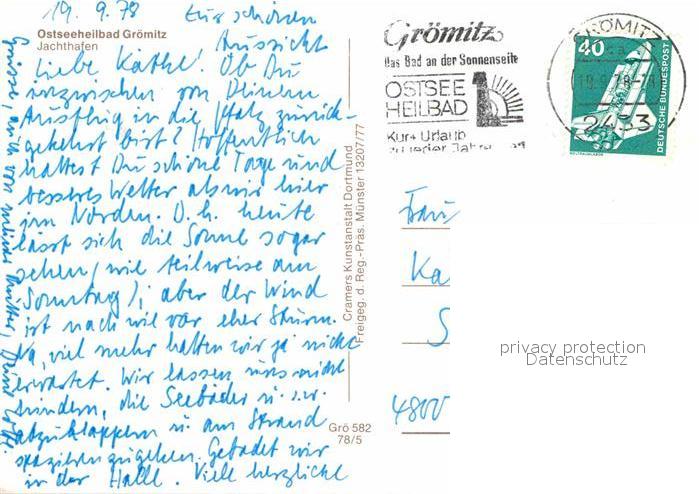 19.9.78 Zur schönen
Aussicht
Ostseeheilbad Grömitz
Jachthafen
Liebe Käthe! Ob Du
inzwischen von Deinem
Ausflug in die Pfalz zurück-
gekehrt bist? Hoffentlich
hattest Du schöne Tage und
besseres Wetter als wir hier
im Norden. D.h. heute
lässt sich die Sonne sogar
sehen (wie teilweise am
Sonntag), aber der Wind
ist nach wie vor eher Sturm.
Na, viel mehr hatten wir ja nicht
erwartet. Wir lassen uns nicht
hindern, die Seebäder u.s.w.
abzuklappern u. am Strand
spazierenzugehen. Gebadet wird
in der Halle. Viele herzliche
Grüsse, auch von meiner Mutter, Deine
Cramers Kunstanstalt Dortmund
Freigeg. d. Reg.-Präs. Münster 13207/77
Grö 582
78/5
Grömitz
das Bad an der Sonnenseite
OSTSEE
HEILBAD
Kur + Urlaub
zu jeder Jahreszeit
GRÖMITZ
19.9.78
2433
40
DEUTSCHE BUNDESPOST
Frau
Ka
S
4800
privacy protection
Datenschutz